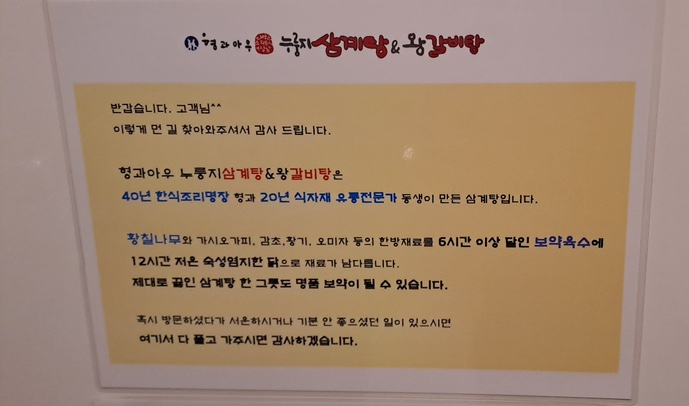 형과아우 누룽지삼계탕&왕갈비탕
반갑습니다. 고객님^^
이렇게 먼 길 찾아와주셔서 감사 드립니다.
형과아우 누룽지삼계탕&왕갈비탕은
40년 한식조리명장 형과 20년 식자재 유통전문가 동생이 만든 삼계탕입니다.
황칠나무와 가시오가피, 감초,황기, 오미자 등의 한방재료를 6시간 이상 달인 보약육수에
12시간 저온 숙성염지한 닭으로 재료가 남다릅니다.
제대로 끓인 삼계탕 한 그릇도 명품 보약이 될 수 있습니다.
혹시 방문하셨다가 서운하시거나 기분 안 좋으셨던 일이 있으시면
여기서 다 풀고 가주시면 감사하겠습니다.